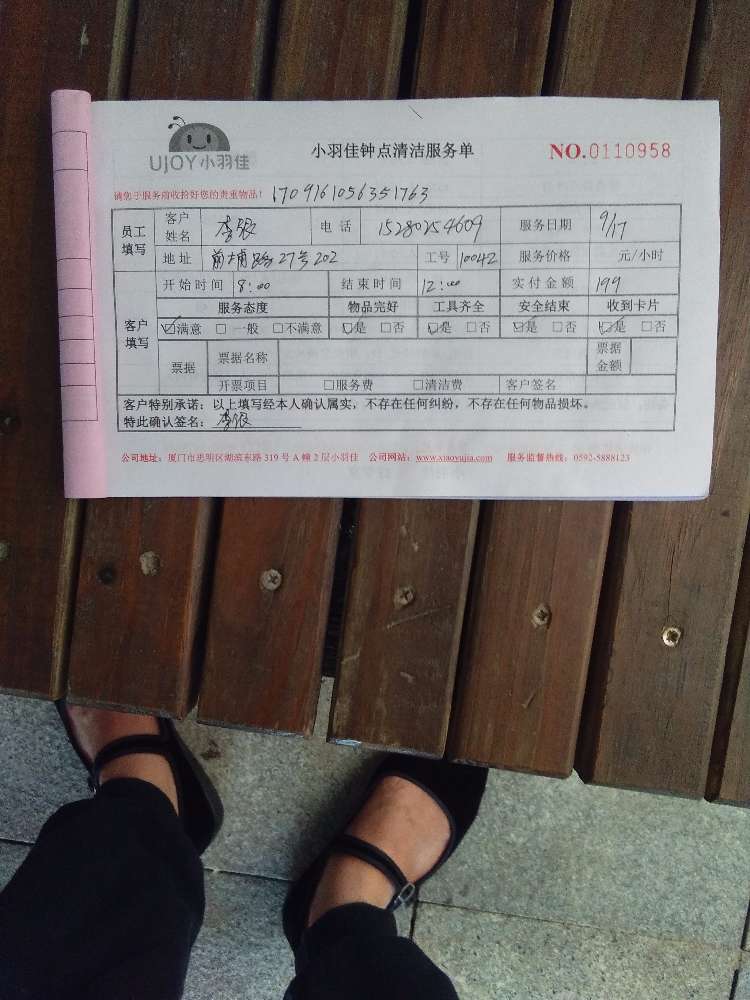 UJOY小羽佳
小羽佳钟点清洁服务单
NO.0110958
请您于服务前收拾好您的贵重物品! 1709161056351763
员工填写 客户姓名 李银 电话 15280254609 服务日期 9/17
地址 前埔路27号202 工号 10042 服务价格 元/小时
客户填写 开始时间 8:00 结束时间 12:00 实付金额 199
服务态度 物品完好 工具齐全 安全结束 收到卡片
☑满意 □一般 □不满意 ☑是 □否 ☑是 □否 ☑是 □否 ☑是 □否
票据 票据名称 票据金额
开票项目 □服务费 □清洁费 客户签名
客户特别承诺:以上填写经本人确认属实,不存在任何纠纷,不存在任何物品损坏。
特此确认签名: 李银
公司地址:厦门市思明区湖滨东路319号A幢2层小羽佳 公司网站:www.xiaoyujia.com 服务监督热线:0592-5888123